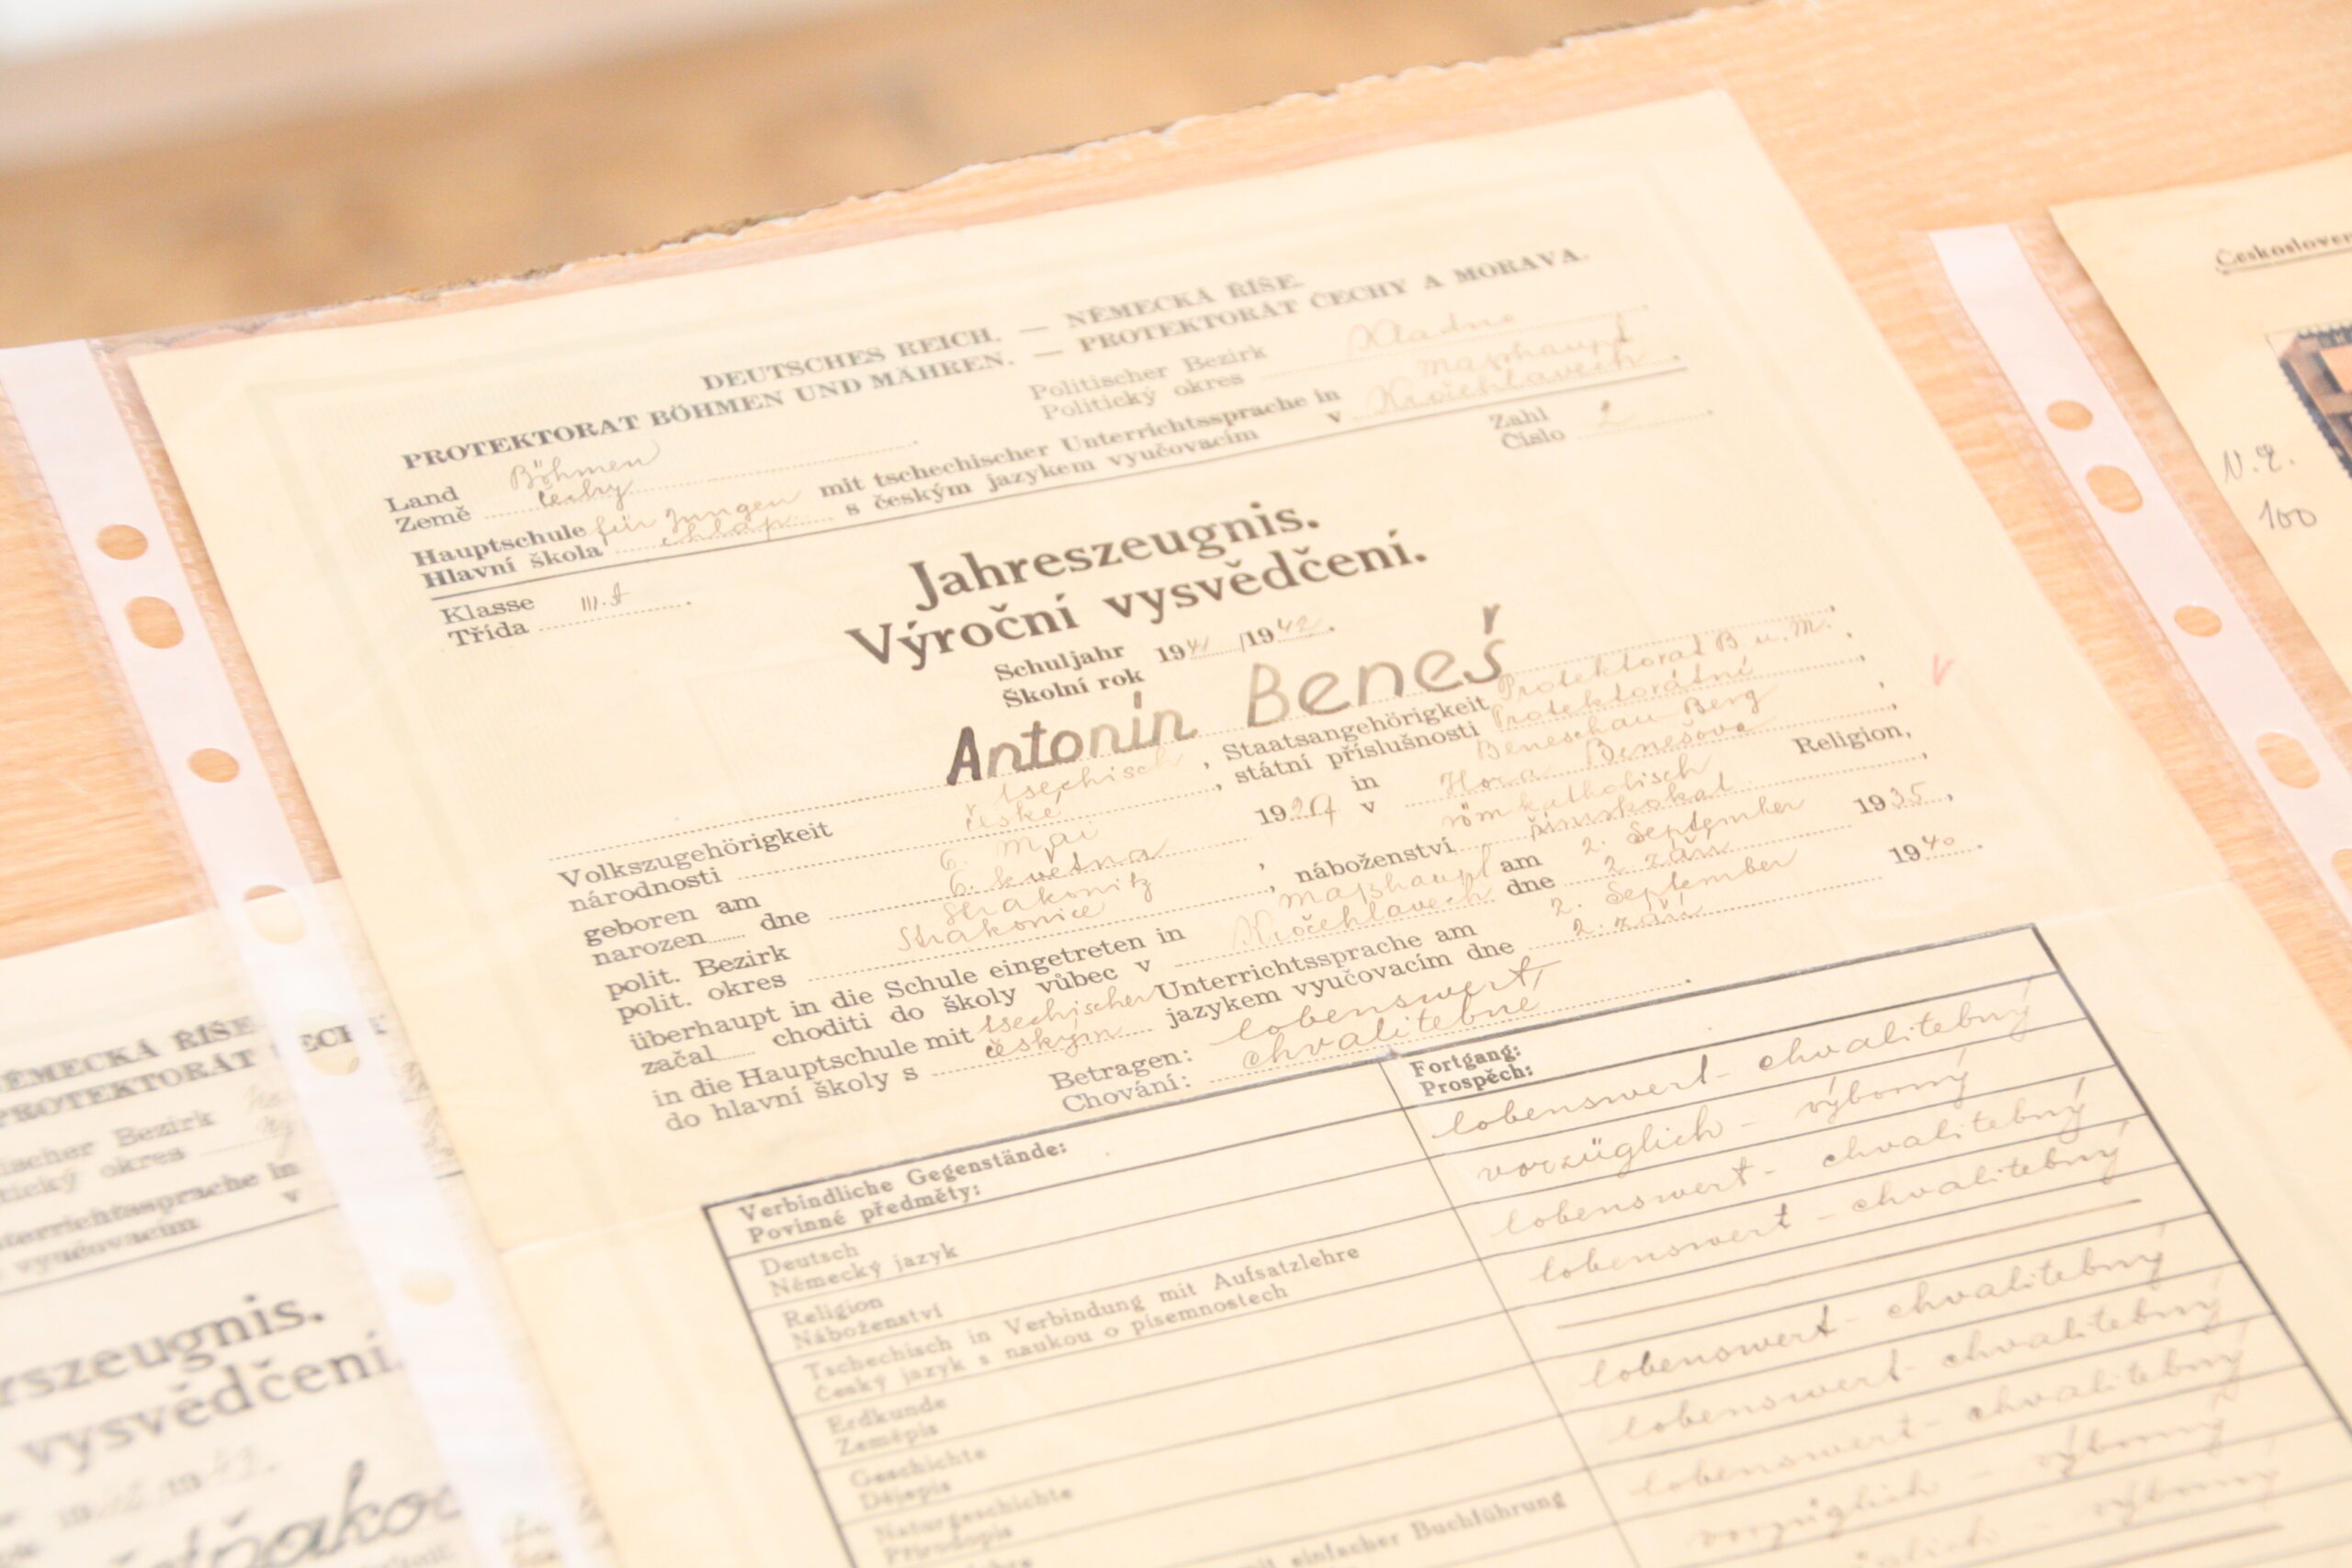 DEUTSCHES REICH. — NĚMECKÁ ŘÍŠE.
PROTEKTORAT BÖHMEN UND MÄHREN. — PROTEKTORÁT ČECHY A MORAVA.
Land Böhmen Politischer Bezirk Kladno
Země Čechy Politický okres
Hauptschule für Jungen mit tschechischer Unterrichtssprache in
Hlavní škola chlap. s českým jazykem vyučovacím v Kročehlavech.
Klasse III.A Zahl 2
Třída Číslo
Jahreszeugnis.
Výroční vysvědčení.
Schuljahr 1941/1942.
Školní rok
Antonín Beneš
Volkszugehörigkeit tschechisch, Staatsangehörigkeit Protektorat B. u. M.,
národnosti české, státní příslušnosti Protektorátní,
geboren am 6. Mai 19 in Beneschau Berg,
narozen dne 6. května v Hora Benešova,
polit. Bezirk Strakonitz, röm katholisch Religion,
polit. okres Strakonice, náboženství
überhaupt in die Schule eingetreten in am 2. September 1935,
začal choditi do školy vůbec v Kročehlavech dne 2. září
in die Hauptschule mit tschechischer Unterrichtssprache am 2. September 1940.
do hlavní školy s českým jazykem vyučovacím dne 2. září
Betragen: lobenswert
Chování: chvalitebné.
Verbindliche Gegenstände: Fortgang:
Povinné předměty: Prospěch:
Deutsch lobenswert - chvalitebný
Německý jazyk
Religion vorzüglich - výborný
Náboženství
Tschechisch in Verbindung mit Aufsatzlehre lobenswert - chvalitebný
Český jazyk s naukou o písemnostech
Erdkunde lobenswert - chvalitebný
Zeměpis
Geschichte
Dějepis
Naturgeschichte lobenswert - chvalitebný
Přírodopis
lobenswert - chvalitebný
mit einfacher Buchführung lobenswert - chvalitebný
vorzüglich - výborný
výborný
NĚMECKÁ ŘÍŠE
PROTEKTORÁT ČECH
ischer Bezirk
tický okres
terrichtssprache in
vyučovacím v
rszeugnis.
vysvědčení.
Českosloven
100